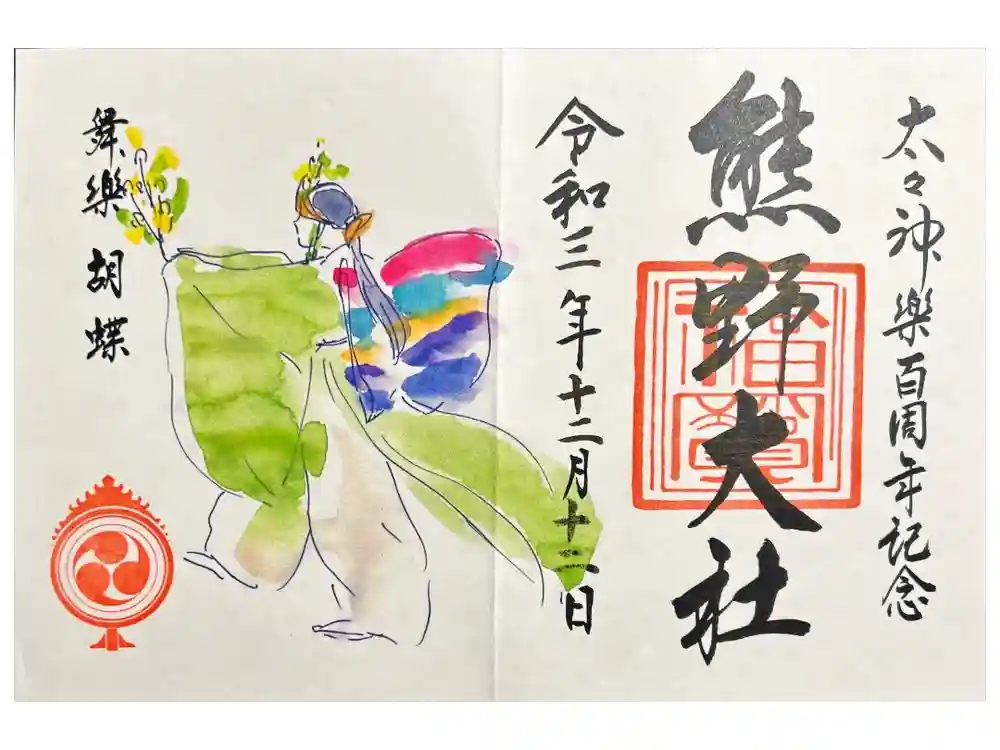 太々神樂百周年記念
熊野大社
令和三年十二月十二日
舞樂 胡蝶